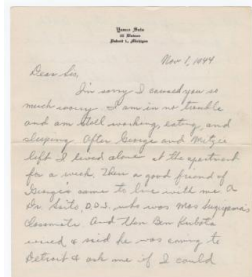 Nov 1, 1944
Dear Sis,
I'm sorry I caused you so
much worry. I am in no trouble
and am still working, eating, and
sleeping. After George and Mitzie
left I lived alone at the apartment
for a week. Then a good friend of
George's came to live with me. A
Dr. Seito, D.D.S. who was Mas Sugiyama's
classmate. And then Ben Kubota
wired & said he was coming to
Detroit & ask me if I could